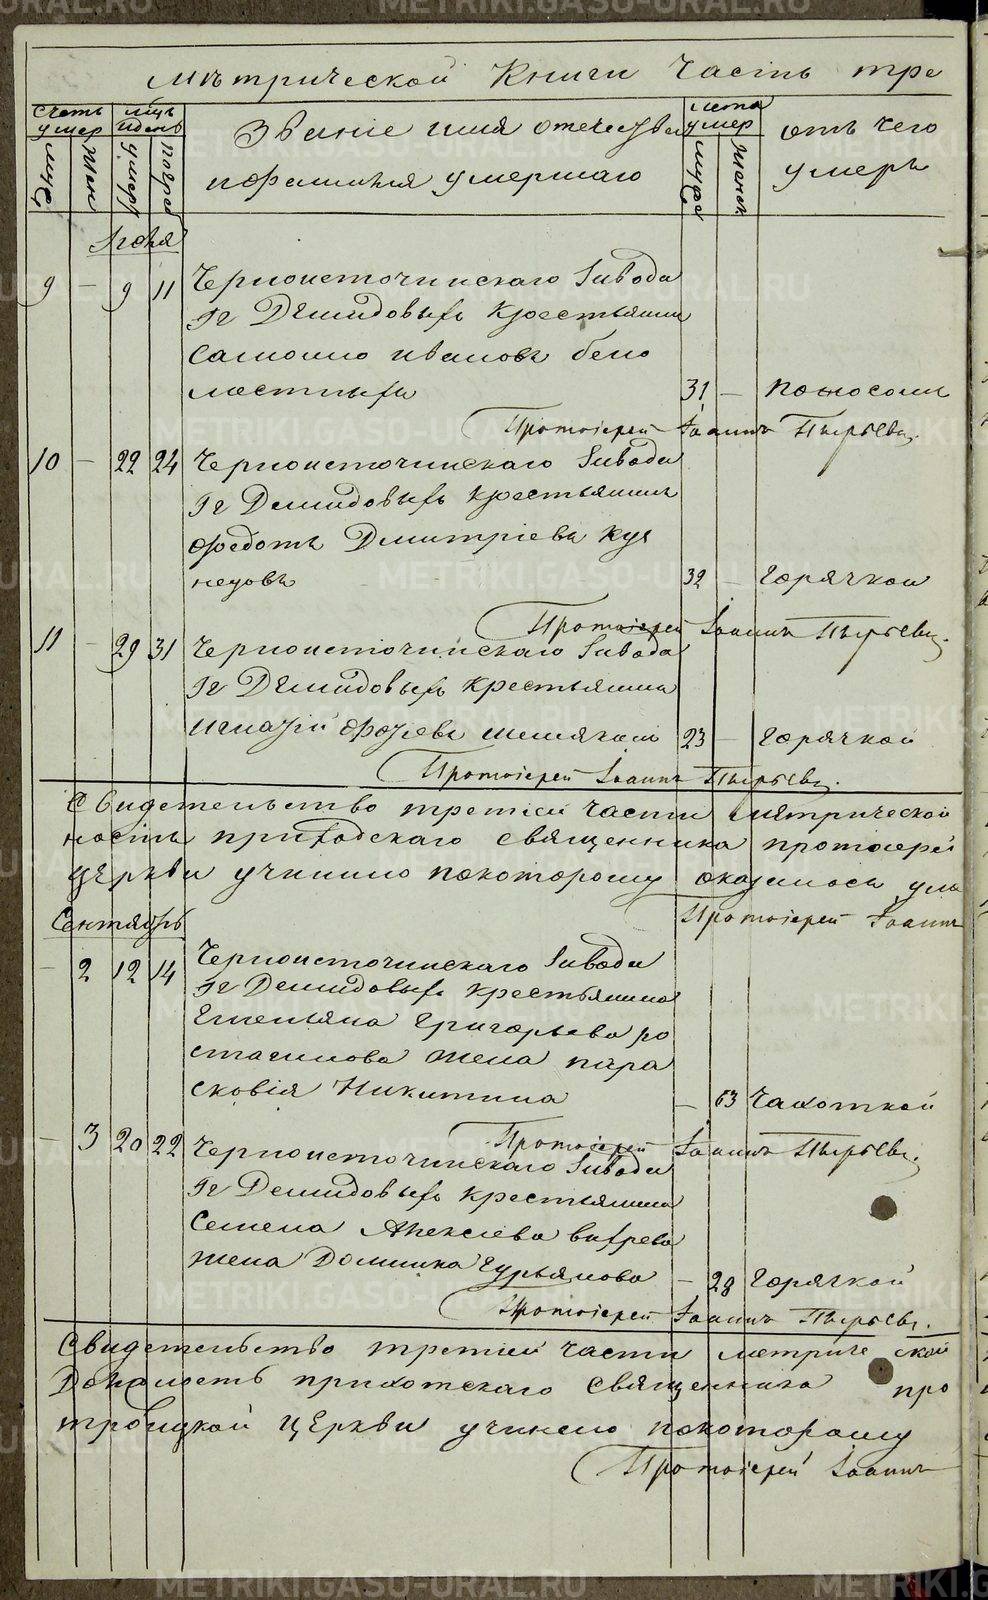 Метрической Книги Часть тре
счетъ умер
мцъ идень
Званіе имя отечество
лета умер
отъ чего
муж
жен
умер
погреб
ифамилия умершаго
муже
женск
умеръ
9 – 9 11 Черноисточинскаго Завода
Гг Демидовыхъ Крестьянин
Самоило ивановъ бело
местныхъ 31 – поносом
Протоіерей Іоаннъ Пырьевъ.
10 – 22 24 Черноисточинскаго Завода
Гг Демидовыхъ Крестьянинъ
Федотъ Дмитріевъ Куз
нецовъ 32 – Горячкой
Протоіерей Іоаннъ Пырьевъ.
11 – 29 31 Черноисточинскаго Завода
Гг Демидовыхъ Крестьянин
игнатій 23 – Горячкой
Протоіерей Іоаннъ Пырьевъ.
Свидетельство третіей части метрической
ность приходскаго священника протоиерей
церкви учинино покоторому оказалось
Протоіерей Іоаннъ
Сентябрь
– 2 12 14 Черноисточинскаго Завода
Гг Демидовыхъ Крестьянина
Емельяна Григорьева ро
жена пара
сковія Никитина – 63 Чахоткой
Протоіерей Іоаннъ Пырьевъ.
– 3 20 22 Черноисточинскаго Завода
Гг Демидовыхъ Крестьянина
Семена Алексіева вихрева
жена Домника Гурьянова – 28 Горячкой
Протоіерей Іоаннъ Пырьевъ.
Свидетельство третіей части метриче ской
Должность прихотскаго Священника про
троицкой церкви учинено покоторому
Протоіерей Іоаннъ
METRIKI.GASO-URAL.RU